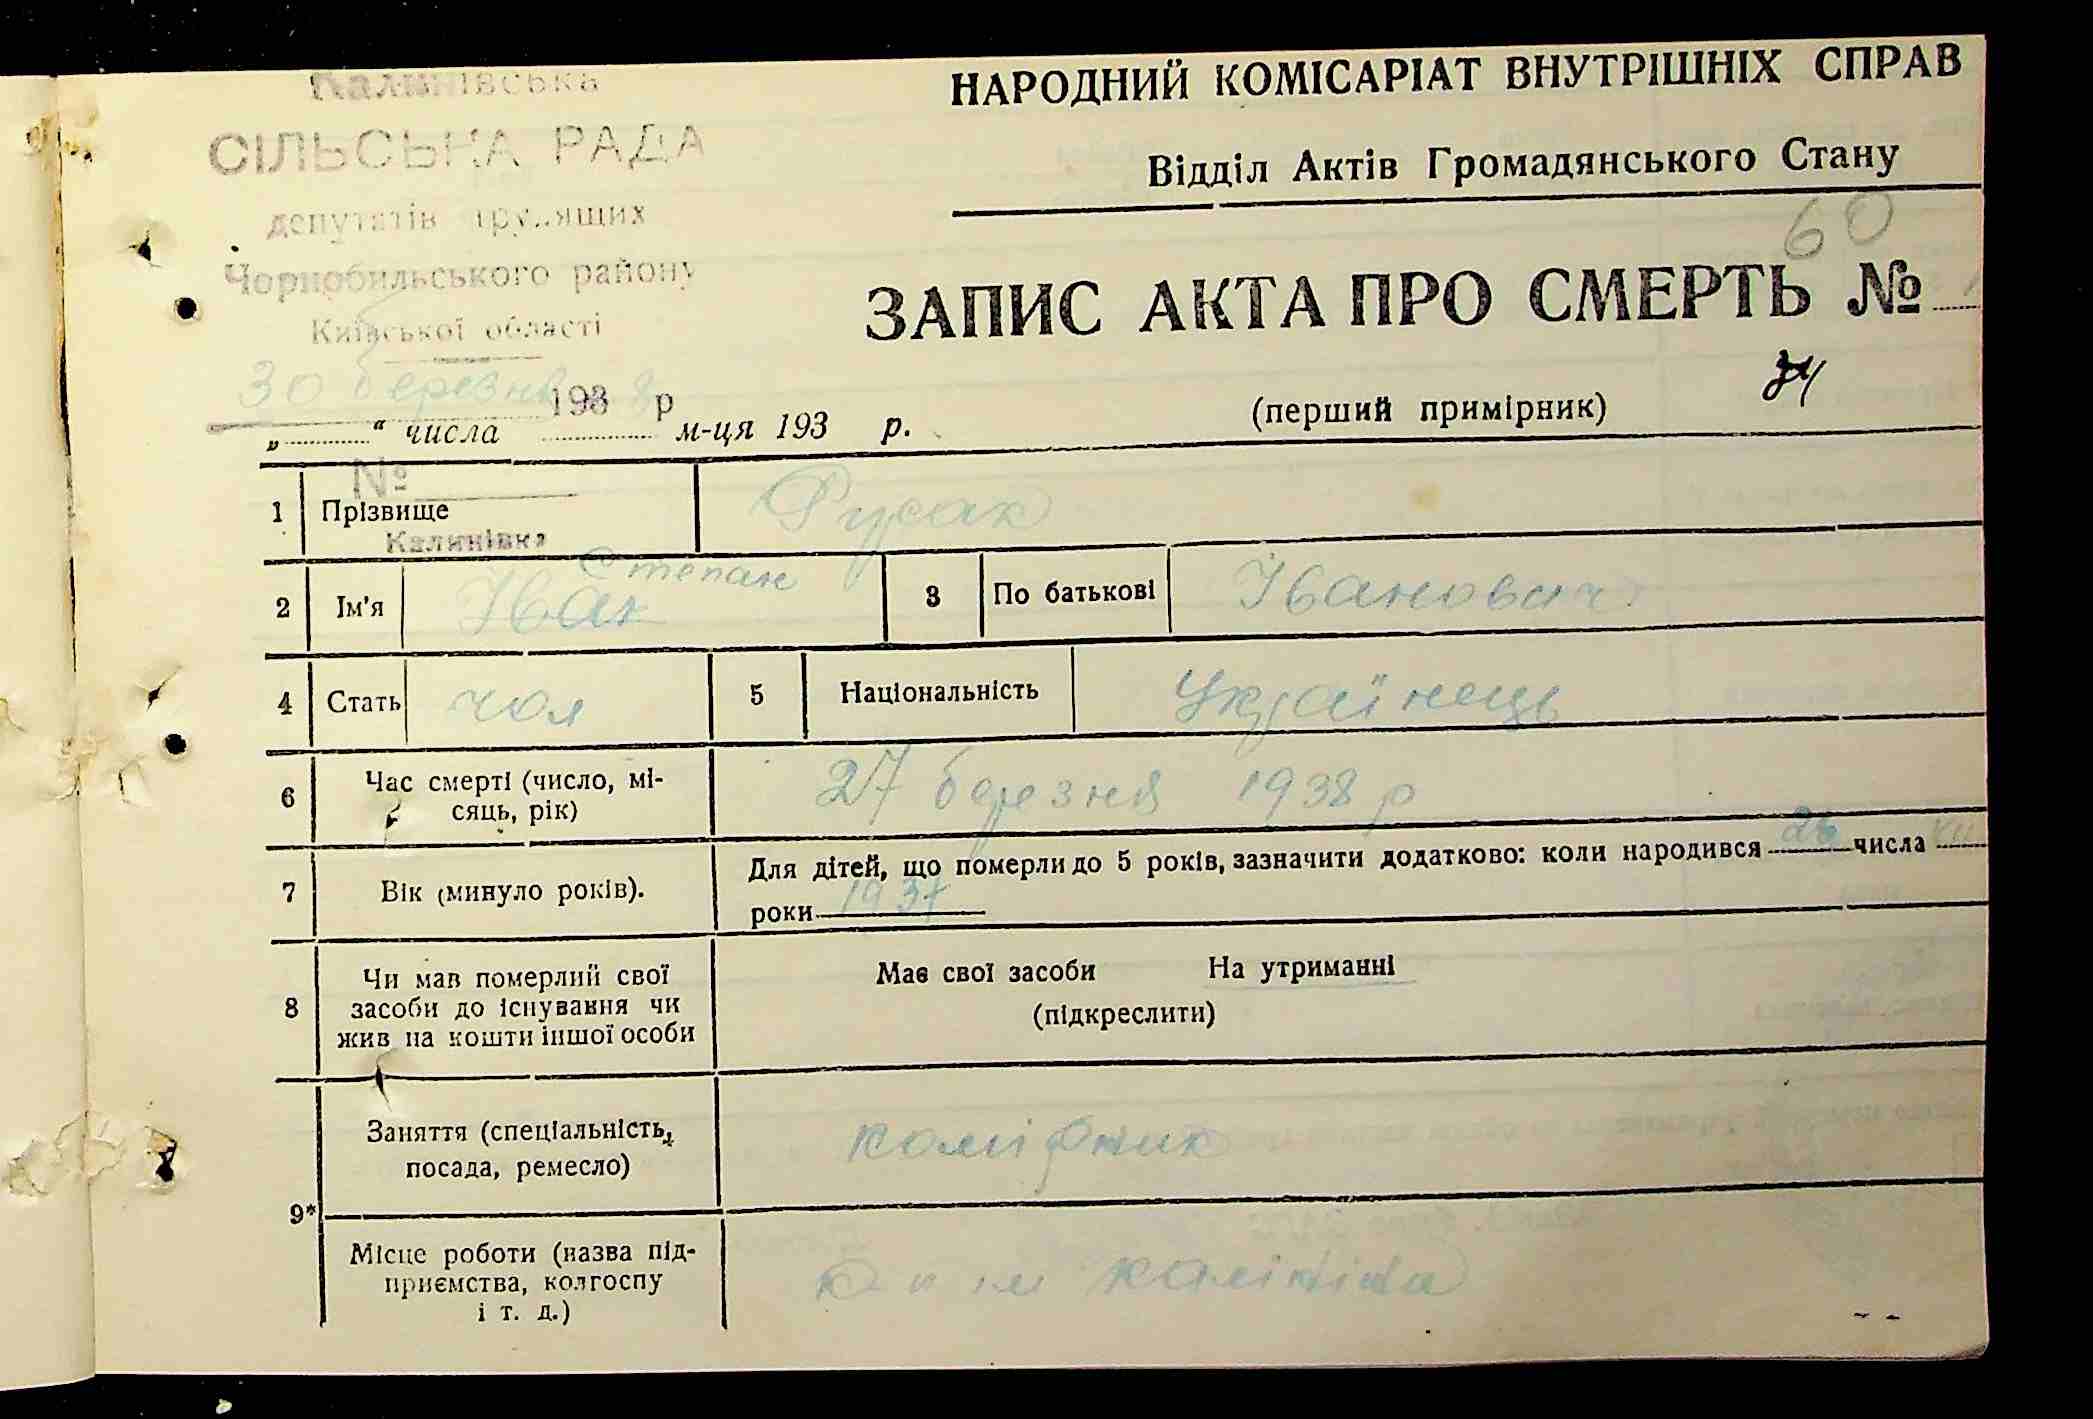 Калинівська
СІЛЬСЬКА РАДА
депутатів трудящих
Чорнобильського району
Київської області
30 березня 1938 р
„ “ числа м-ця 193 р.
№
Калинівка
НАРОДНИЙ КОМІСАРІАТ ВНУТРІШНІХ СПРАВ
Відділ Актів Громадянського Стану
60
ЗАПИС АКТА ПРО СМЕРТЬ №
(перший примірник)
1 Прізвище Русак
2 Ім'я Іван Степан 3 По батькові Іванович
4 Стать чол 5 Національність Українець
6 Час смерті (число, мі-
сяць, рік) 27 березня 1938 р
7 Вік (минуло років). Для дітей, що померли до 5 років, зазначити додатково: коли народився 26 числа XII
роки 1937
8 Чи мав померлий свої
засоби до існування чи
жив на кошти іншої особи
Має свої засоби На утриманні
(підкреслити)
9*
Заняття (спеціальність,
посада, ремесло)
Місце роботи (назва під-
приємства, колгоспу
і т. д.)
калініна